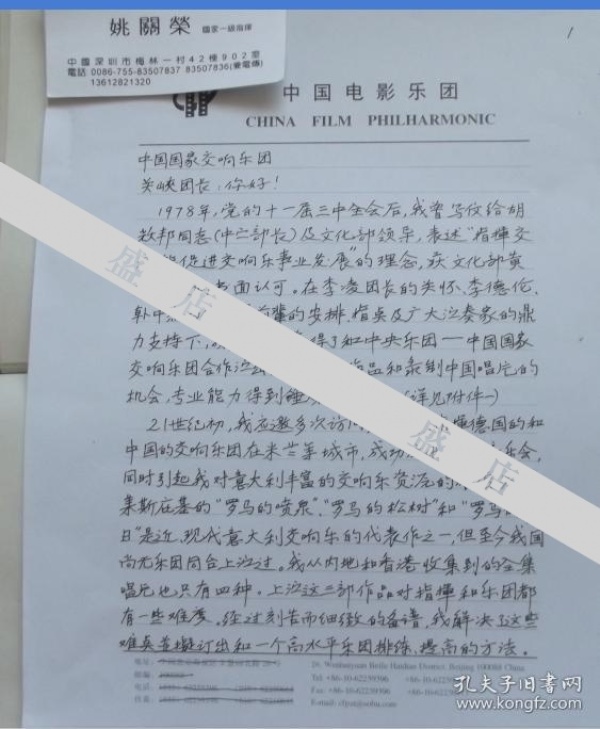 姚關榮 國家一級指揮
中國深圳市梅林一村42棟902室
電話 0086-755-83507837 83507836(兼電傳)
13612821320
1
中国电影乐团
CHINA FILM PHILHARMONIC
中国国家交响乐团
关峡团长:你好!
1978年,党的十一届三中全会后,我曾写信给胡
耀邦同志(中宣部长)及文化部领导,表述"指挥交
促进交响乐事业发展"的理念,获文化部黄
面认可。在李凌团长的关怀、李德伦、
韩中 辈的安排、指点及广大演奏家的鼎
力支持下, 得了和中央乐团—中国国家
交响乐团合作演 作品和录制中国唱片的
机会,专业能力得到锤 (详见附件一)
21世纪初,我应邀多次访 指挥德国的和
中国的交响乐团在米兰等城市,成功 音乐会,
同时引起我对意大利丰富的交响乐资源的
莱斯庇基的"罗马的喷泉","罗马的松树"和"罗马
日"是近、现代意大利交响乐的代表作之一,但至今我国
尚无乐团同台上演过。我从内地和香港收集到的全集
唱片也只有四种。上演这三部作品对指挥和乐团都
有一些难度。经过刻苦而细致的备谱,我解决了这些
难点并拟订出和一个高水平乐团排练、提高的方法。
26, Wenhuiyuan Beilu Haidian District, Beijing 100088 China
Tel: +86-10-62259396
Fax: +86-10-62259396
盛店
盛店
孔夫子旧书网
www.kongfz.com